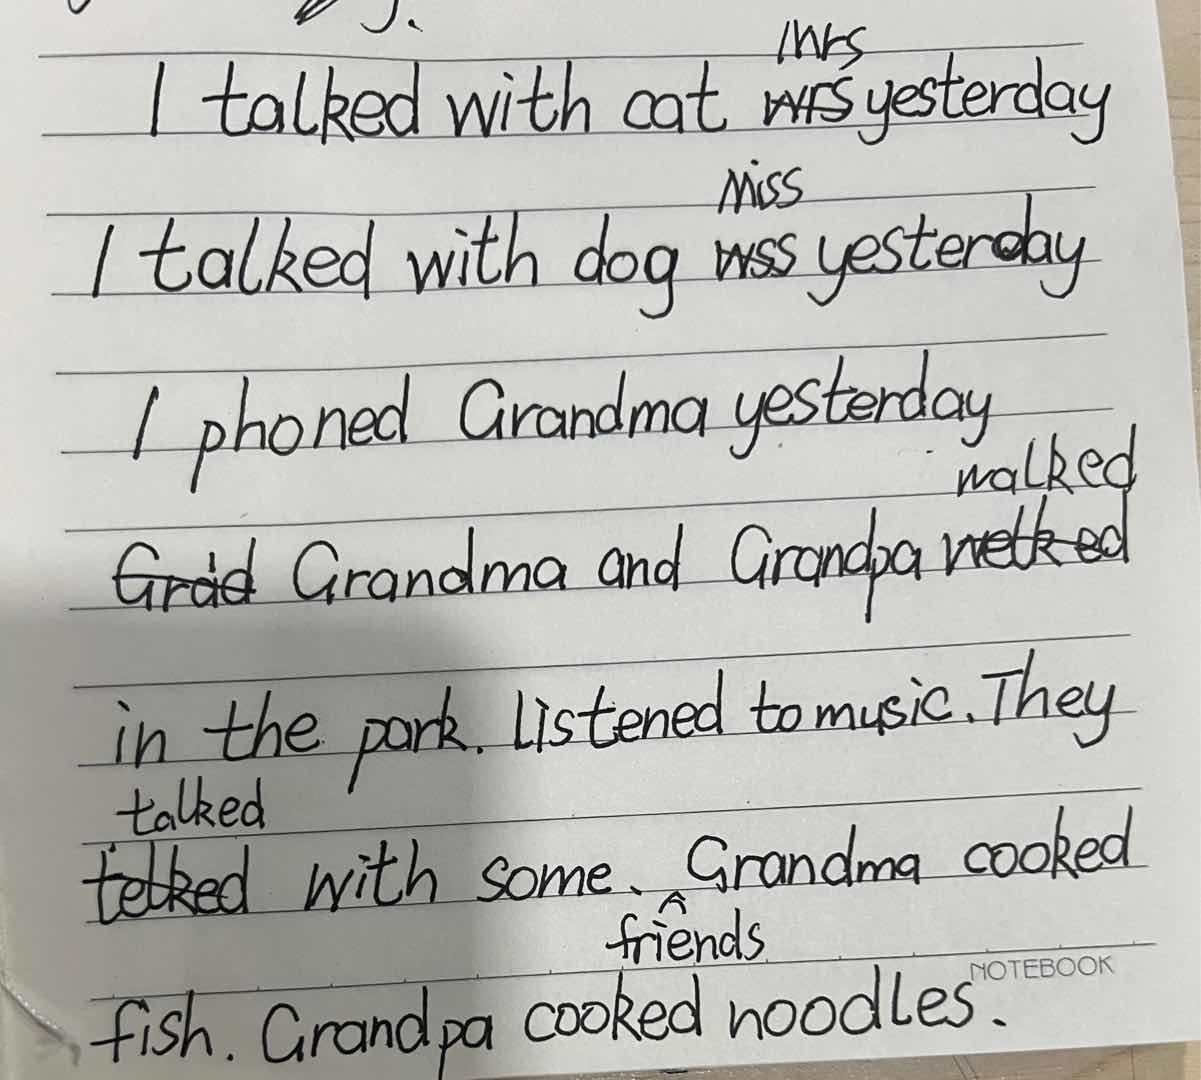 Mrs
I talked with cat wrs yesterday
Miss
I talked with dog wss yesterday
I phoned Grandma yesterday
walked
Grad Grandma and Grandpa welked
in the park. Listened to music. They
talked
telked with some. Grandma cooked
friends
NOTEBOOK
fish. Grandpa cooked noodles.